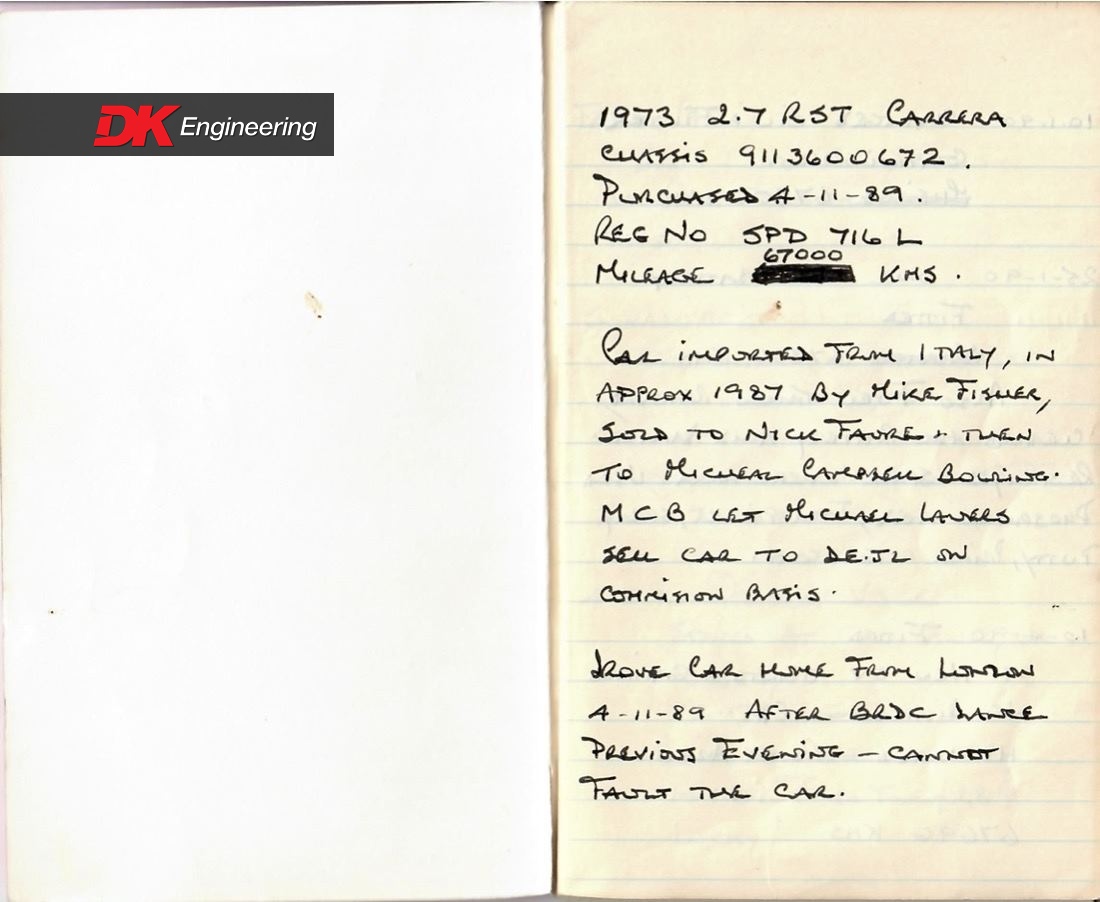 DK Engineering
1973 2.7 RST CARRERA
CHASSIS 9113600672.
PURCHASED 4-11-89.
REG NO SPD 716 L
67000
MILEAGE KMS.
CAR IMPORTED FROM ITALY, IN
APPROX 1987 BY MIKE FISHER,
SOLD TO NICK FAURE + THEN
TO MICHEAL CAMPBELL BOWLING.
M C B LET MICHAEL LAVERS
SELL CAR TO DE.JL ON
COMMISION BASIS.
DROVE CAR HOME FROM LONDON
4-11-89 AFTER BRDC DANCE
PREVIOUS EVENING – CANNOT
FAULT THE CAR.